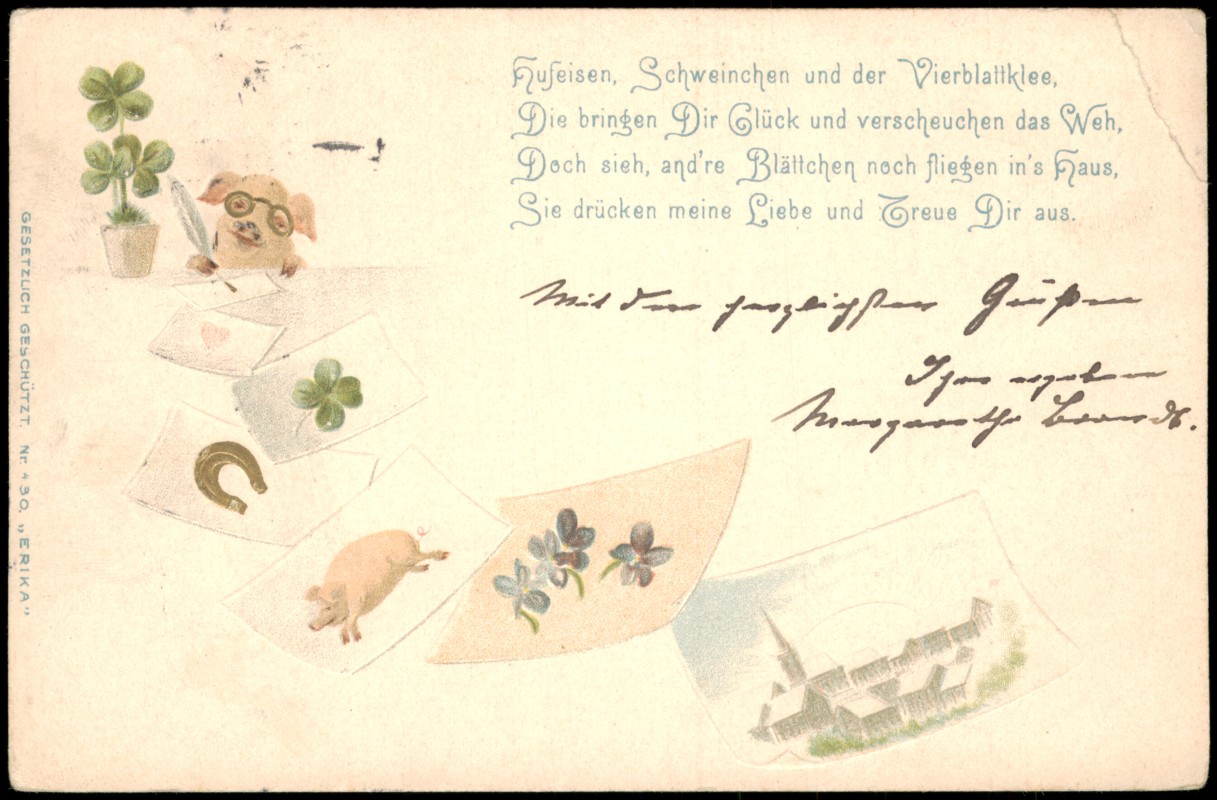 Hufeisen, Schweinchen und der Vierblattklee,
Die bringen Dir Glück und verscheuchen das Weh,
Doch sieh, and're Blättchen noch fliegen in's Haus,
Sie drücken meine Liebe und Treue Dir aus.
Mit den herzlichsten Grüßen
Ihre ergebene
Margarethe Brandt.
GESETZLICH GESCHÜTZT. Nr. 430. „ERIKA"